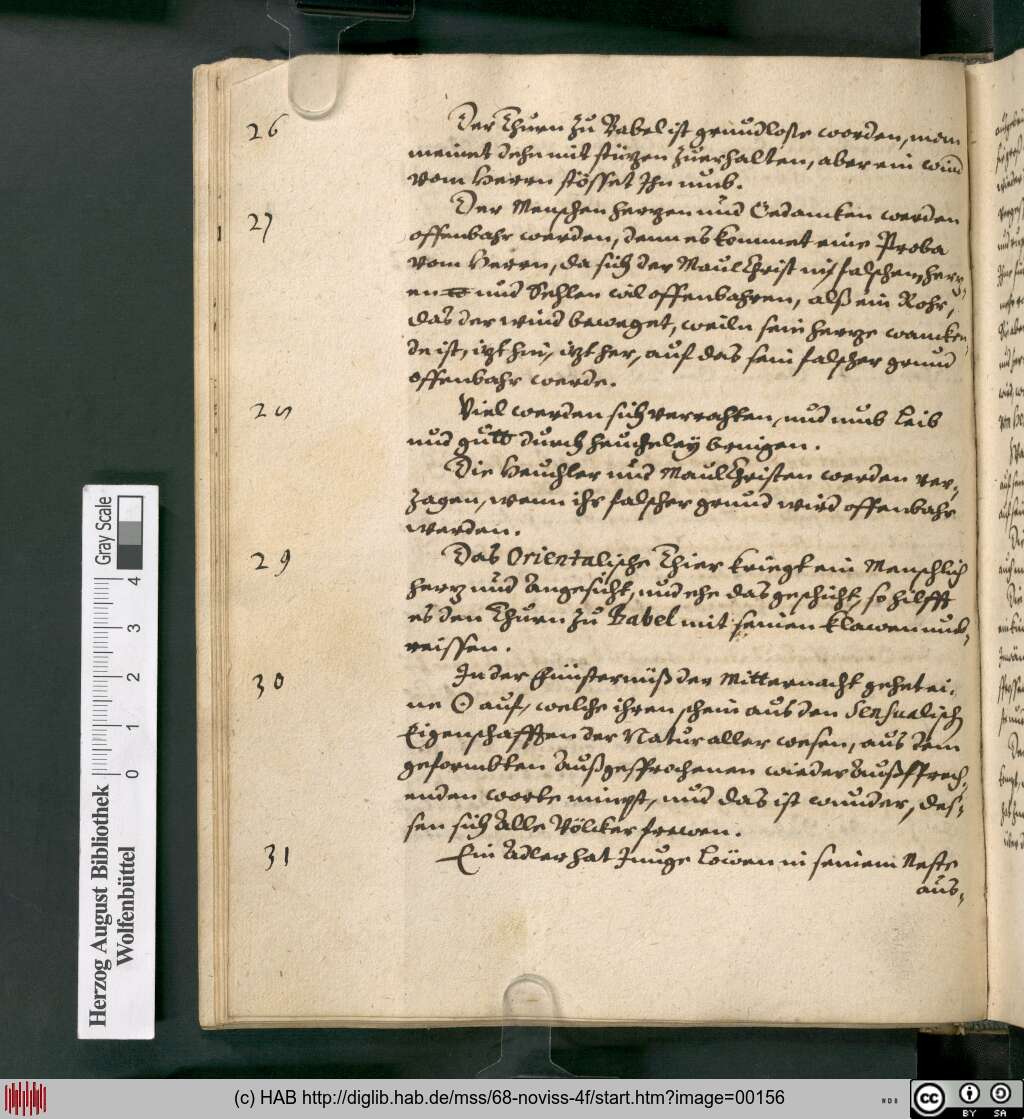 26 Der Thurn zu Babel ist grundloße worden, man
meinet dehn mit stützen zuerhalten, aber ein wind
vom Herrn stösset Ihn umb.
27 Der Menschen hertzen und Gedancken werden
offenbahr werden, denn es kommet eine Proba
vom Herrn, da sich der MaulChrist mit falschem hertz-
en und Sehlen wil offenbahren, alß ein Rohr,
das der wind beweget, weiln sein hertze wancken-
de ist, itzt hin, itzt her, auf das sein falscher grund
offenbahr werde.
28 Viel werden sich verrahten, und umb Leib
und gutt durch heucheley bringen.
Die Heuchler und MaulChristen werden ver-
zagen, wenn ihr falscher grund wird offenbahr
werden.
29 Das Orientalische Thier kriegt ein Menschlich
hertz und Angesicht, und ehe das geschicht, so hilfft
es den Thurn zu Babel mit seinen Klawen umb-
reissen.
30 In der finsternüß der Mitternacht gehet ei-
ne ☉ auf, welche ihren schein aus den Sensualisch
Eigenschafften der Natur aller wesen, aus dem
geformbten Außgesprochenen wieder Außsprech-
enden worte nimpt, und das ist wunder, des-
sen sich Alle Völcker frewen.
31 Ein Adler hat Junge Löwen in seinem Neste
aus-
Herzog August Bibliothek
Wolfenbüttel
0 1 2 3 4
Gray Scale
(c) HAB http://diglib.hab.de/mss/68-noviss-4f/start.htm?image=00156
cc BY SA